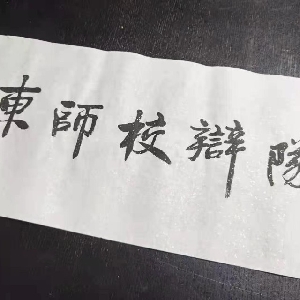 東師校辯隊